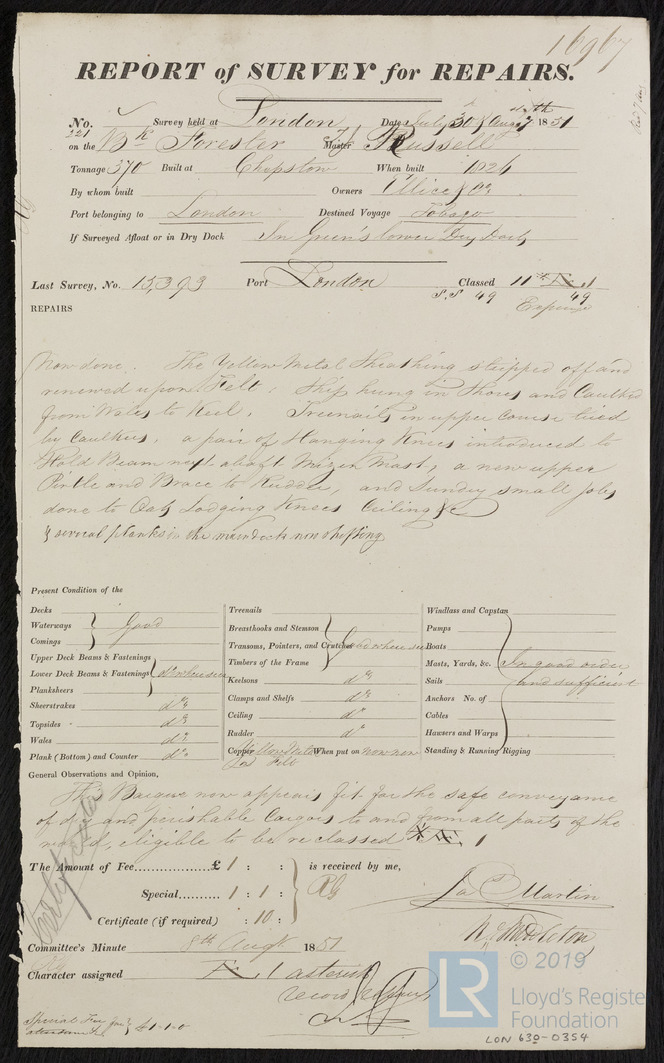 16967
REPORT of SURVEY for REPAIRS.
No. 321 Survey held at London Date July 30 & Augt 7th 1851
on the Bk Forester Master Russell
Tonnage 370 Built at Chepstow When built 1826
By whom built Owners & Co.
Port belonging to London Destined Voyage Tobago
If Surveyed Afloat or in Dry Dock In Green's lower Dry Dock
Last Survey, No. 15,393 Port London Classed
S.S 49 49
REPAIRS
Now done. The Yellow Metal Sheathing stripped off and
renewed upon Felt, Ship hung in Shores and Caulked
from Wales to Keel. Treenails in upper course tried
by Caulkers, a pair of Hanging Knees introduced to
Hold Beam next abaft Mizen Mast, a new upper
Pintle and Brace to Rudder, and Sundry small jobs
done to Oak Lodging Knees Ceiling &c
& several planks in the main deck now shifting
Present Condition of the
Decks
Waterways Good
Comings
Upper Deck Beams & Fastenings
Lower Deck Beams & Fastenings do where seen
Planksheers
Sheerstrakes do
Topsides do
Wales do
Plank (Bottom) and Counter do
Treenails
Breasthooks and Stemson
Transoms, Pointers, and Crutches Good where seen
Timbers of the Frame
Keelsons do
Clamps and Shelfs do
Ceiling do
Rudder do
Copper Yellow Metal When put on now new
on Felt
Windlass and Capstan
Pumps
Boats
Masts, Yards, &c. In good order
Sails and sufficient
Anchors No. of
Cables
Hawsers and Warps
Standing & Running Rigging
General Observations and Opinion,
This Barque now appears fit for the safe conveyance
of dry and perishable Cargoes to and from all parts of the
world, eligible to be reclassed
The Amount of Fee £ 1 : : is received by me,
Special 1 : 1 : RG
Certificate (if required) : 10 :
Jas Martin
Committee's Minute 8th Augt 1851
Character assigned 1 asterisk
Special Fee £1-1-0
© 2019
LR
Lloyd's Register
Foundation
LON 630-0354